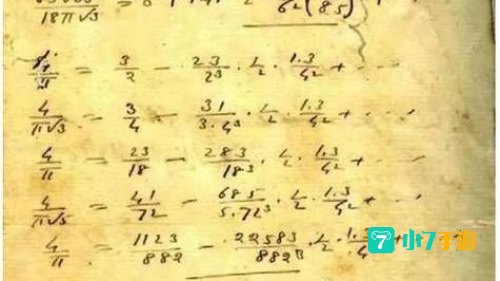 18π√3 = 
4/π = 3/2 − 23/2³ · 1/2 · 1.3/4² + · · ·
4/π√3 = 3/4 − 31/3.4³ · 1/2 · 1.3/4² + · · ·
4/π = 23/18 − 283/18³ · 1/2 · 1.3/4² + · · ·
4/π√5 = 41/72 − 685/5.72³ · 1/2 · 1.3/4² + · · ·
4/π = 1123/882 − 22583/882³ · 1/2 · 1.3/4² + · ·
7 小7手游